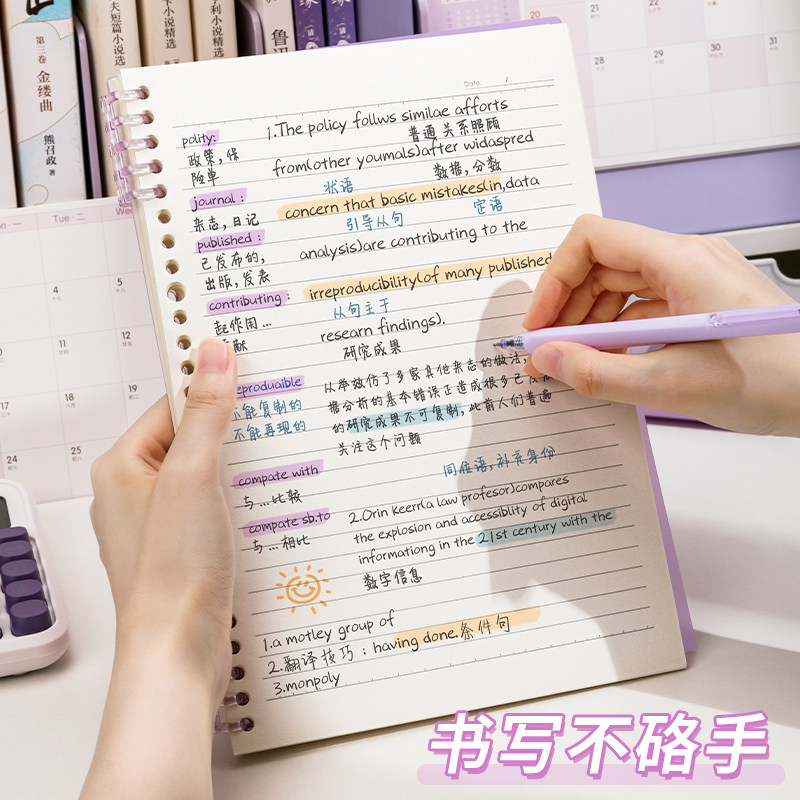 第三卷
金缕曲
熊召政
夫短篇小说
小说精选
利小说精选
鲁迅
Date. /
polity:
政策,保
险单
journal:
杂志,日记
published:
已发布的,
出版,发表
contributing:
起作用...
献
eproduaible
不能复制的
不能再现的
compate with
与...比较
compate sb.to
与...相比
1.The policy follws similae afforts
普通 关系照顾
from(other youmals)after widaspred
状语
数据,分数
concern that basic mistakes(in,data
引导从句
定语
analysis)are contributing to the
irreproducibility(of many published
从句主干
researn findings).
研究成果
从举效仿了多家其他杂志的做法,
据分析的基本错误正造成很多已发
的研究成果不可复制,此前人们普遍
关注这个问题
同位语,补充身份
2.Orin keerr(a law profesor)compares
the explosion and accessiblity of digital
informationg in the 21st century with the
数字信息
1.a motley group of
2.翻译技巧:having done.条件句
3.monpoly
Tu·二
We
4
5
11
12
18
19
25
17
24
20
21
22
28
29
30
31
书写不硌手